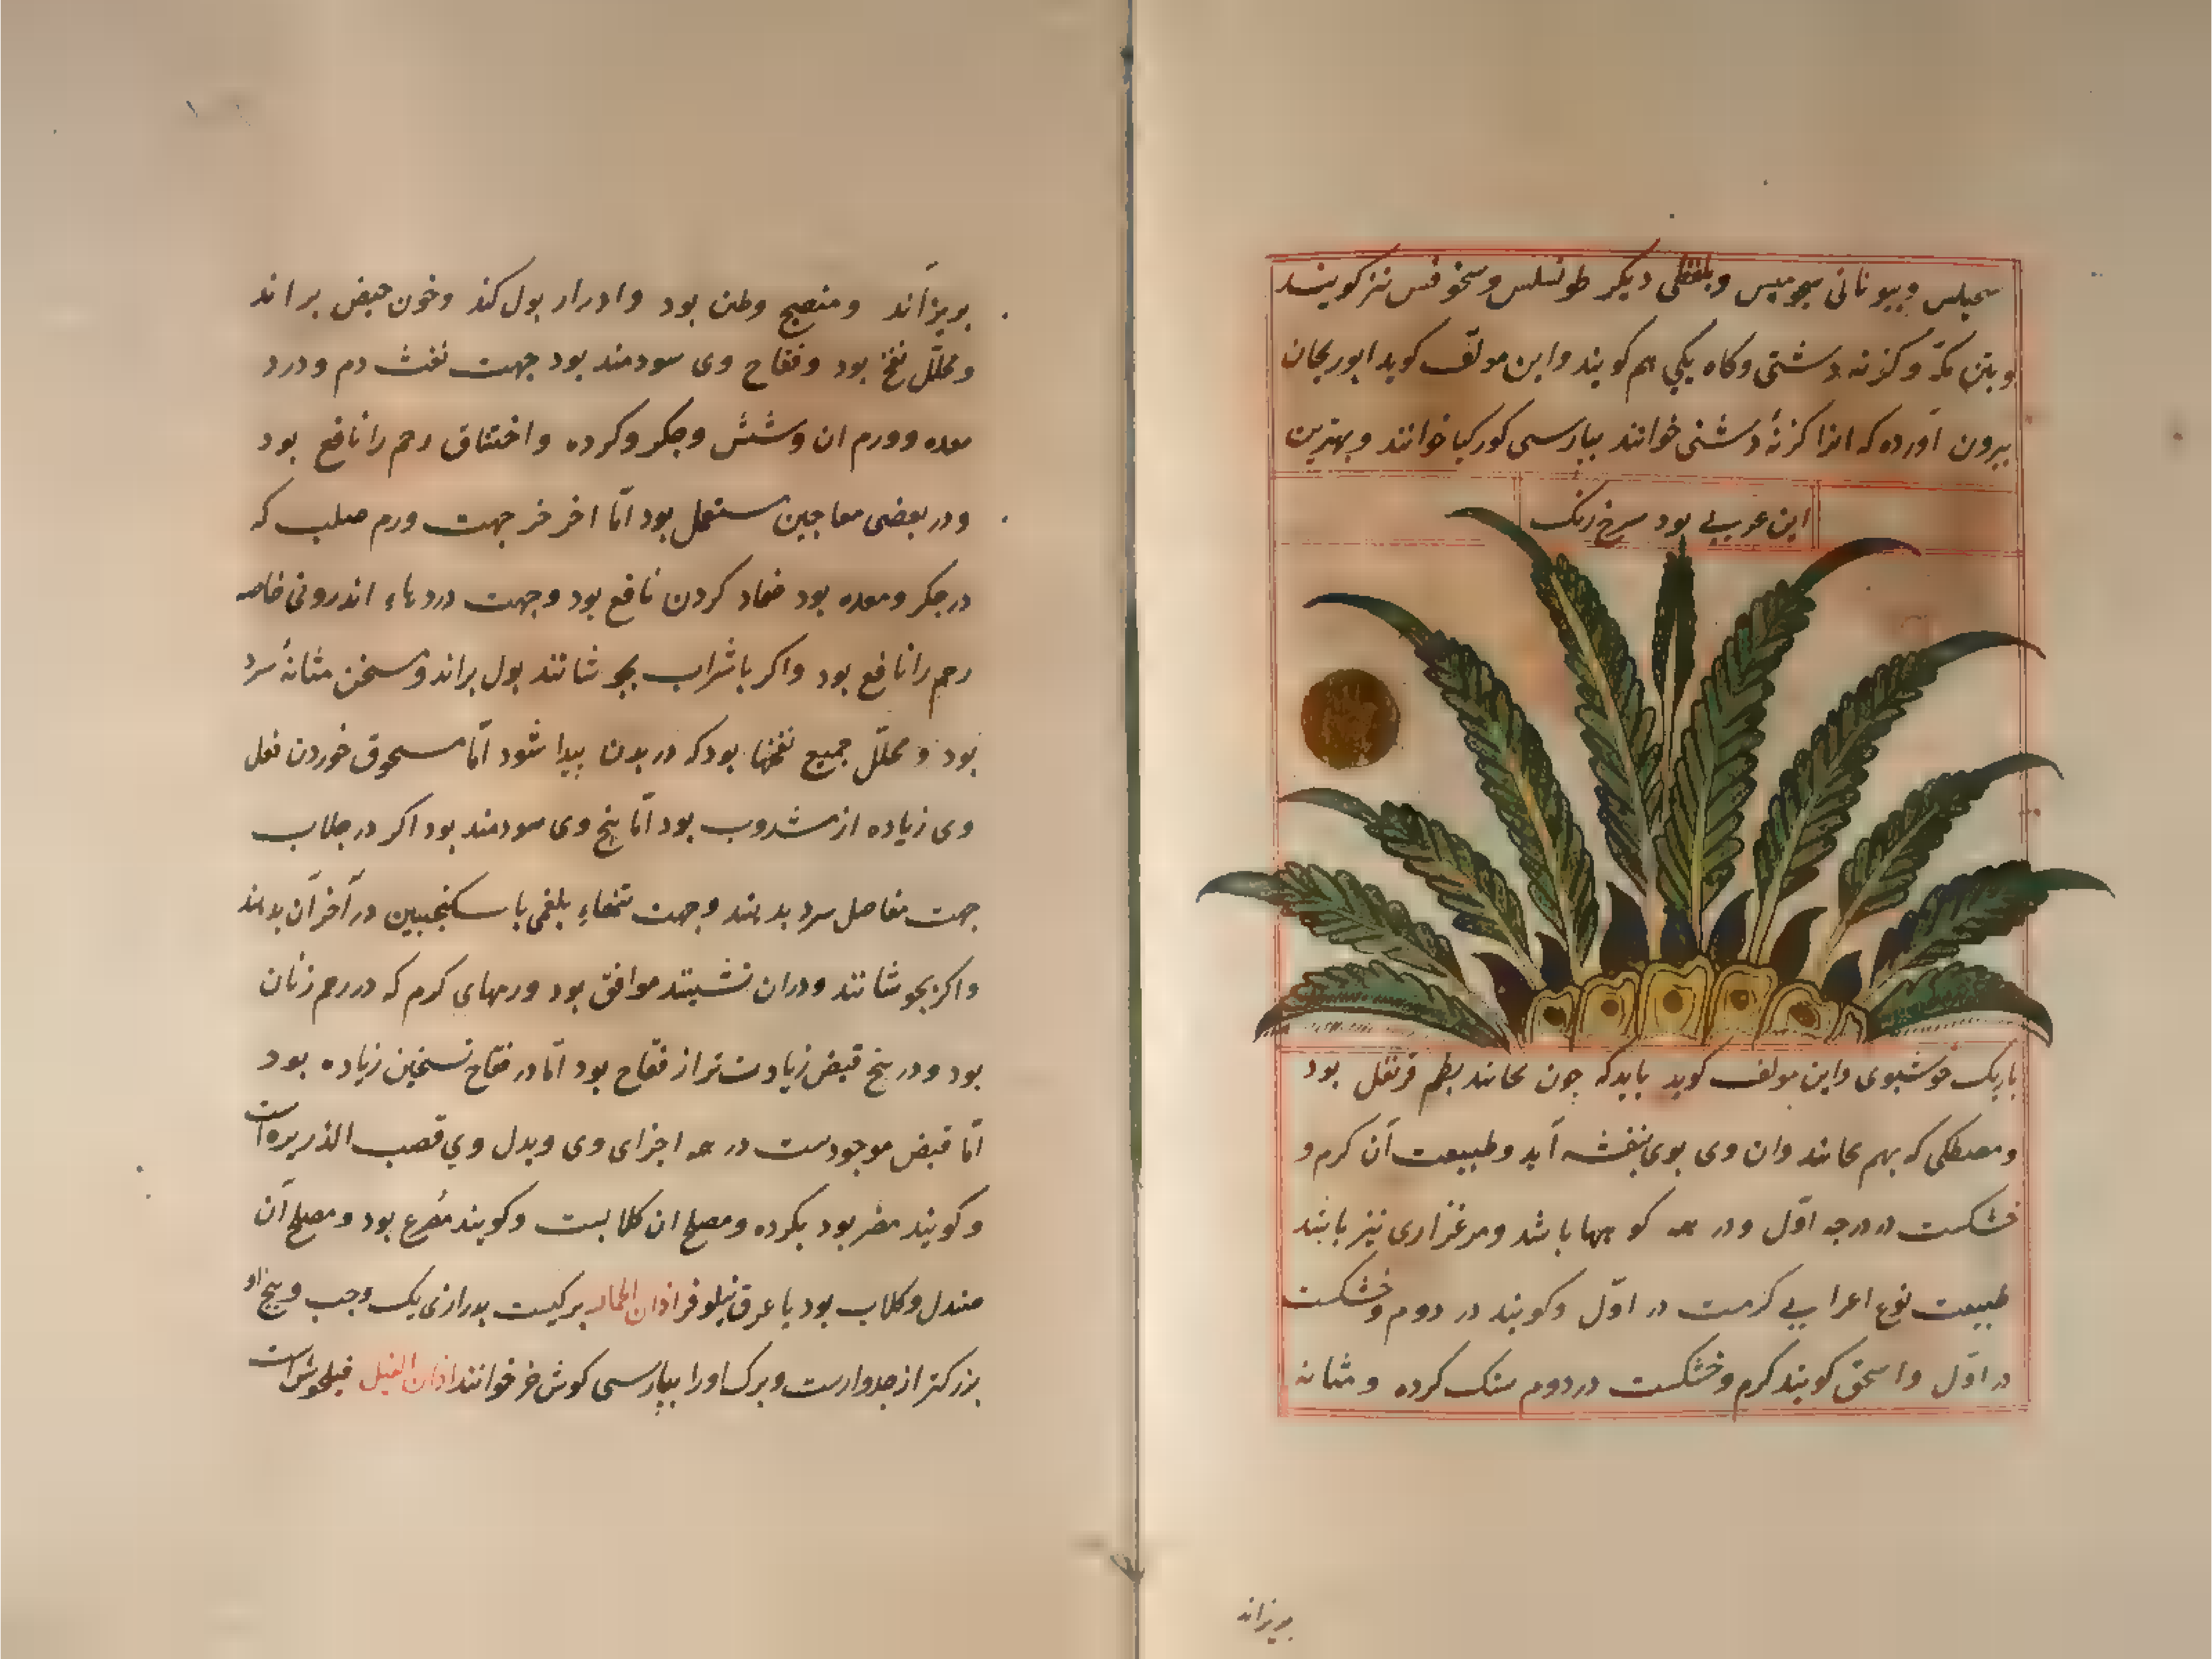 سحیلس وبیونانی سجومیس وبلفظی دیکر طونسلس وسخوفس نیز کویند
وبتن مکّه وکزنه دشتی وکاه یکی هم کویند واین مولّف کوید ابوریحان
بیرون آورده که انرا کزنهٔ دشتی خوانند بپارسی کورکیا خوانند وبهترین
این عربی بود سرخ رنک
باریک خوشبوی واین مولف کوید بایدکه چون بخانند بطعم قرنفل بود
ومصطکی که بهم بخانند وان وی بوی بنفشه آید وطبیعت آن کرم و
خشکست در درجه اوّل ودر همه کوهها باشد ومرغزاری نیز باشد
طبیعت نوع اعرابی کرمست در اوّل وکویند در دوم وخشکست
در اوّل واسحق کویند کرم وخشکست در دوم سنک کرده ومثانه
بریزاند
بریزآند ومنضج وملین بود وادرار بول کند وخون حیض براند
ومحلّل نفخ بود وفقاح وی سودمند بود جهت نفث دم ودرد
معده وورم ان وشش وجکر وکرده واختناق رحم را نافع بود
ودر بعضی معاجین مستعمل بود امّا اخر خر جهت ورم صلب که
در جکر ومعده بود ضماد کردن نافع بود وجهت دردهاء اندرونی خاصه
رحم را نافع بود واکر با شراب بجوشانند بول براند ومسخن مثانهٔ سرد
بود ومحلّل جمیع نفخها بود که در بدن پیدا شود امّا مسحوق خوردن فعل
وی زیاده از مشروب بود امّا بیخ وی سودمند بود اکر در جلاب
جهت مفاصل سرد بدهند وجهت تبهاءِ بلغمی با سکنجبین در آخر آن بدهند
واکر بجوشانند ودران نشینند موافق بود ورمهای کرم که در رحم زنان
بود ودر بیخ قبض زیادت تر از فقاح بود امّا در فقاح تسخین زیاده بود
امّا قبض موجودست در همه اجزای وی وبدل وی قصب الذریره است
وکویند مضر بود بکرده ومصلح ان کلابست وکویند مُصَرع بود ومصلح آن
صندل وکلاب بود یا عرق نیلوفر اذان الحمار برکیست بدرازی یک وجب وبیخ او
بزرکتر از جدوارست وبرک اورا بپارسی کوش خر خوانند اذان الفیل فیلجوش است